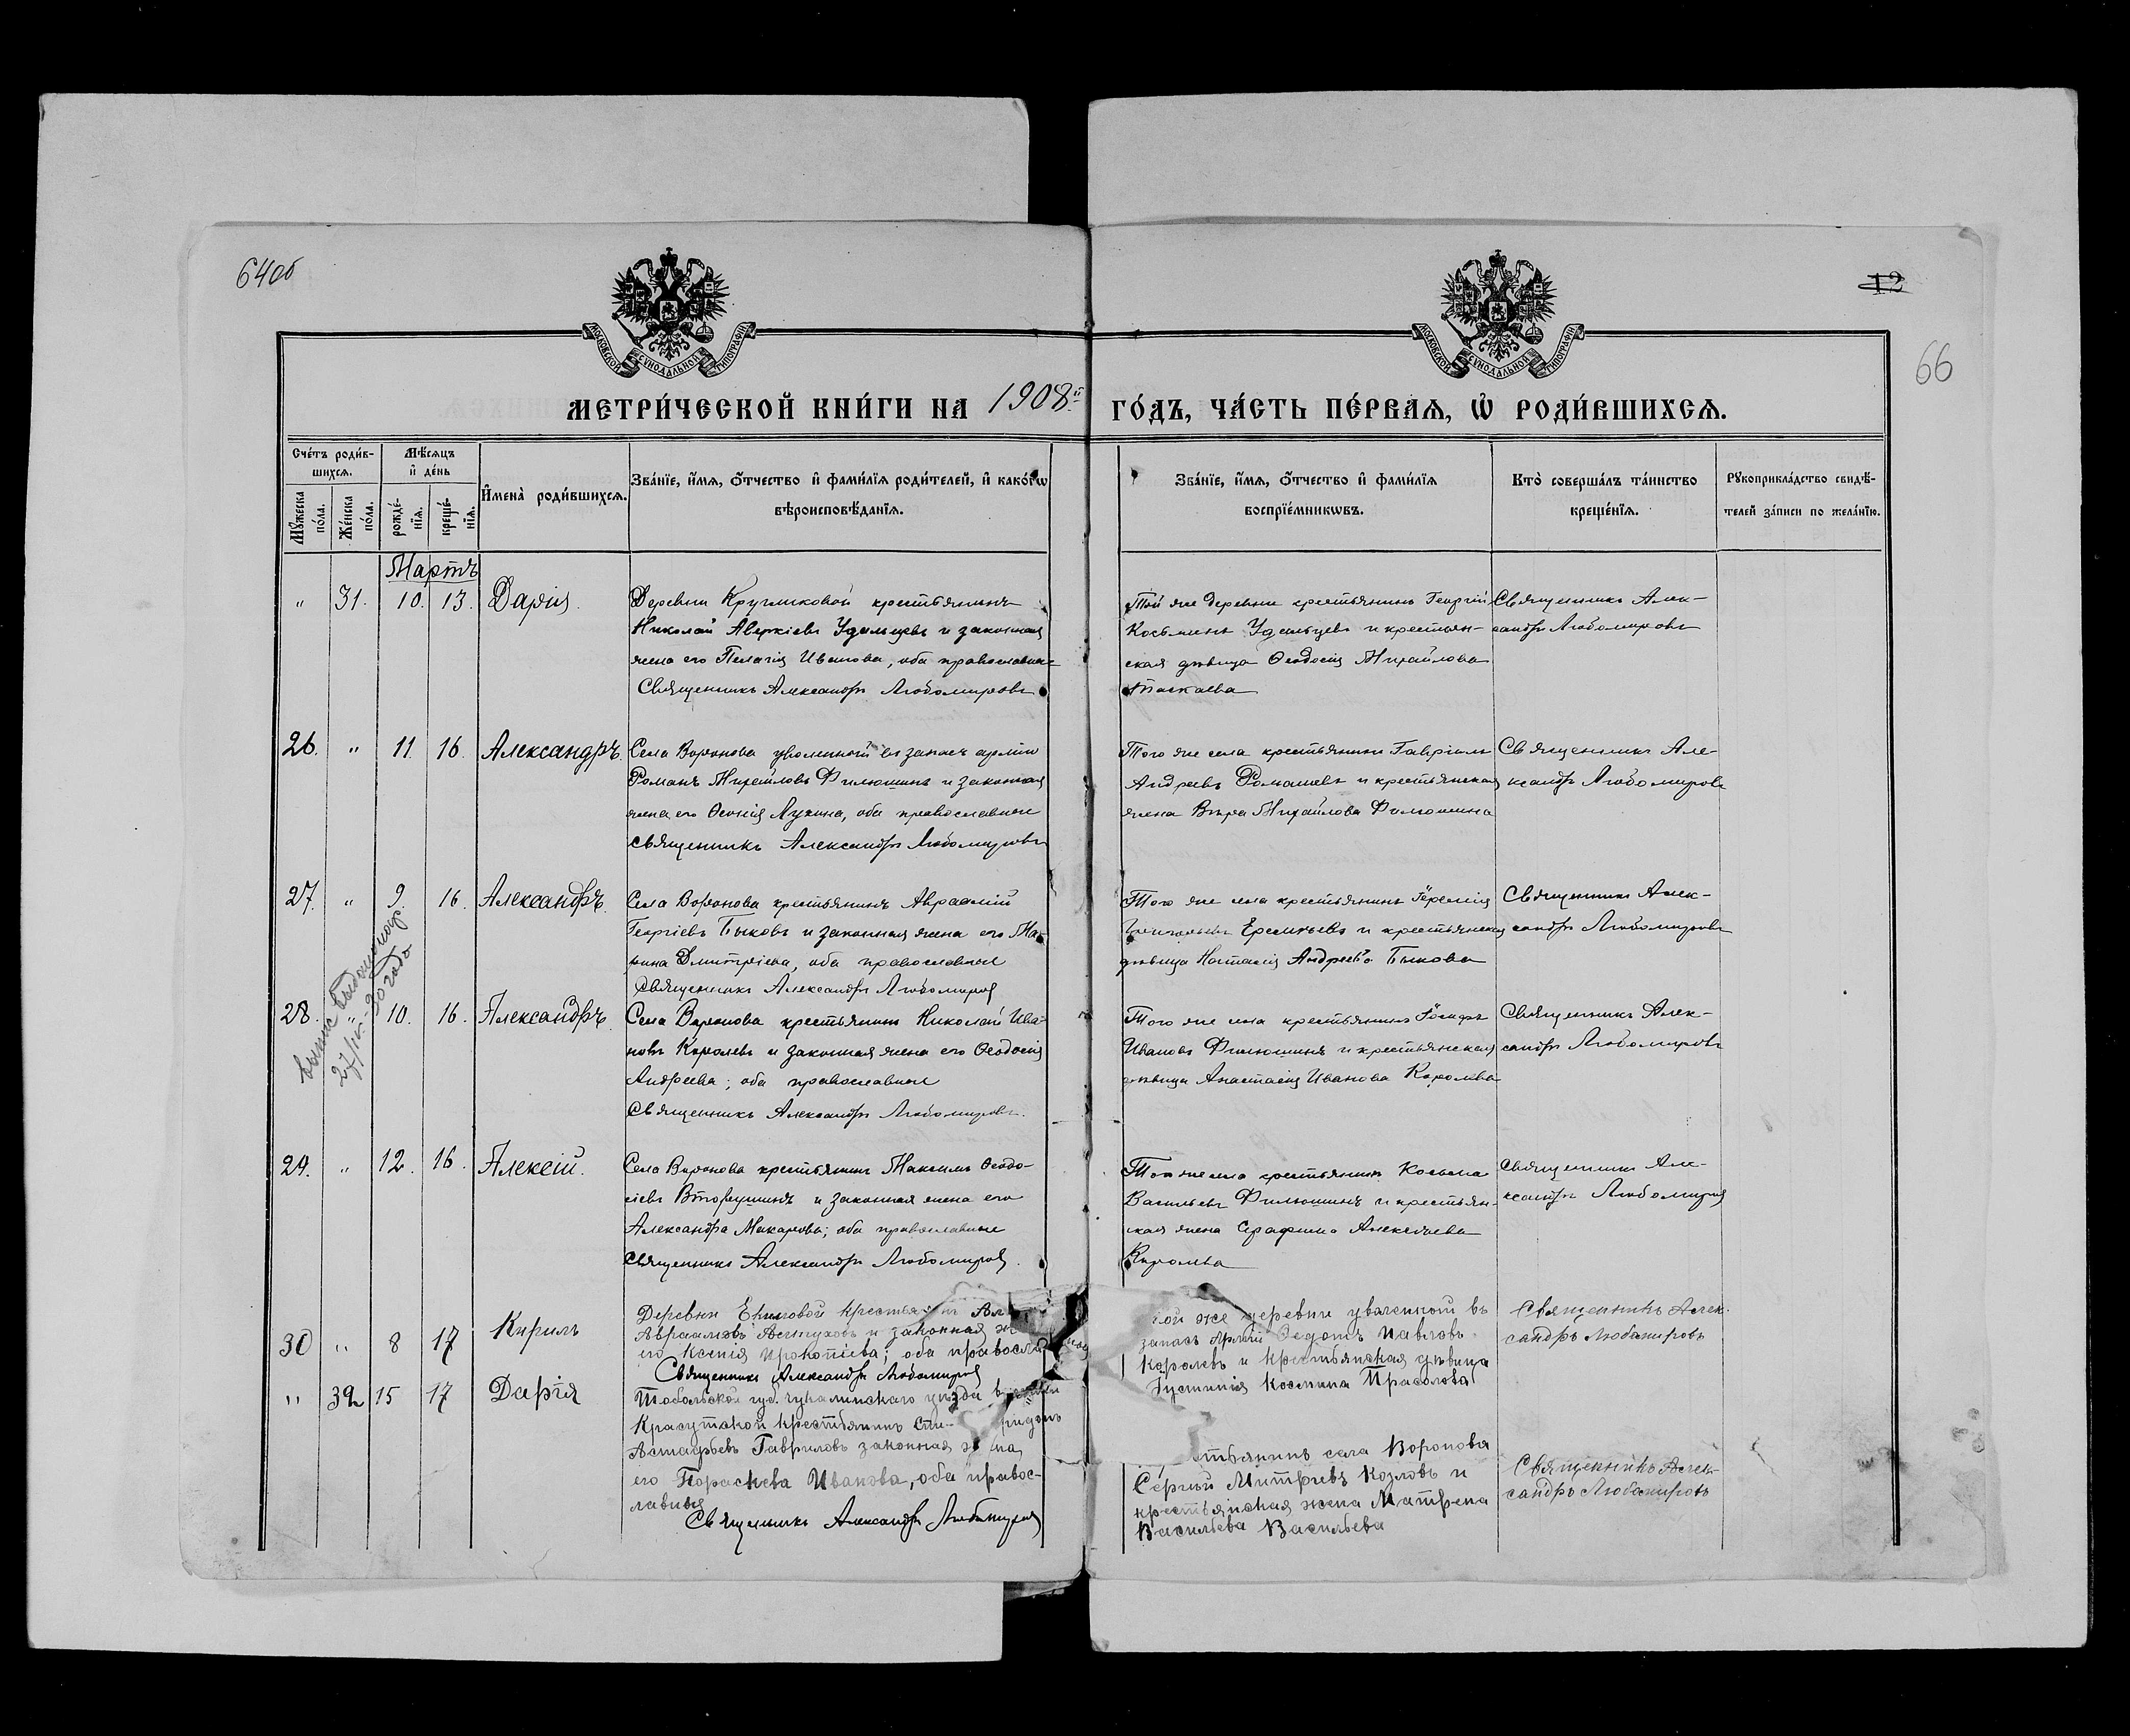 64об
12
66
МОСКОВСКОЙ СѴНОДАЛЬНОЙ ТИПОГРАФІИ
МОСКОВСКОЙ СѴНОДАЛЬНОЙ ТИПОГРАФІИ
МЕТРИ́ЧЕСКОЙ КНИ́ГИ НА 1908й ГО́ДЪ, ЧА́СТЬ ПЕ́РВАѦ, Ѡ҆ РОДИ́ВШИХСѦ.
Сче́тъ роди́в-
шихсѧ.
Мꙋ́жеска по́ла.
Же́нска по́ла.
Мѣ́сѧцъ и҆ де́нь
рожде́-нїѧ.
креще́-нїѧ.
И҆мена̀ роди́вшихсѧ.
Зва́нїе, и҆́мѧ, ѻ҆́тчество и҆ фами́лїѧ роди́телей, и҆ како́гѡ
вѣроисповѣ́данїѧ.
Зва́нїе, и҆́мѧ, ѻ҆́тчество и҆ фами́лїѧ
воспрїе́мникѡвъ.
Кто̀ соверша́лъ та́инство
креще́нїѧ.
Рꙋкоприкла́дство свидѣ́-
телей за́писи по жела́нїю.
Мартъ
" 31. 10. 13. Дарія.
Деревни Кругликовой крестьянинъ
Николай Аверкіевъ Удальцевъ и законная
жена его Пелагія Иванова, оба православные
Священникъ Александръ Любомировъ
Той же деревни крестьянинъ Георгій
Косьминъ Удальцевъ и крестьян-
ская дѣвица Ѳеодосія Михайлова
Таскаева
Священникъ Алек-
сандръ Любомировъ
26. " 11. 16. Александръ.
Села Воронова уволенный въ запасъ арміи
Романъ Михайловъ Филюшинъ и законная
жена его Лукина, оба православные
Священникъ Александръ Любомировъ
Того же села крестьянинъ Гавріилъ
Андреевъ Ромашевъ и крестьянская
жена Вѣра Михайлова Филюшина
Священникъ Але-
ксандръ Любомировъ
27. " 9. 16. Александръ.
Села Воронова крестьянинъ Авраамій
Георгіевъ Быковъ и законная жена его Ма-
рина Димитріева, оба православные
Священникъ Александръ Любомировъ
Того же села крестьянинъ Іеремія
Еремѣевъ и крестьянская
дѣвица Наталія Андреева Быкова
Священникъ Алек-
сандръ Любомировъ
28. " 10. 16. Александръ.
Села Воронова крестьянинъ Николай Ива-
новъ Королевъ и законная жена его Ѳеодосія
Андреева; оба православные
Священникъ Александръ Любомировъ.
Того же села крестьянинъ Іосифъ
Ивановъ Филюшинъ и крестьянская
дѣвица Анастасія Иванова Королева
Священникъ Алек-
сандръ Любомировъ
27/IV-30 года
29. " 12. 16. Алексій.
Села Воронова крестьянинъ Максимъ Ѳеодо-
сіевъ Вторушинъ и законная жена его
Александра Макарова; оба православные
Священникъ Александръ Любомировъ.
Того же села крестьянинъ Косьма
Васильевъ Филюшинъ и крестьян-
ская жена Серафима Алексѣева
Королева
Священникъ Але-
ксандръ Любомировъ
30 " 8 17 Кирилъ
Деревни Екимовой крестья
Авраамовъ и законная
его Ксенія Прокопіева; оба правосла
Священникъ Александръ Любомировъ
ой же деревни уволенный въ
запасъ Арміи Федотъ Павловъ
Королевъ и крестьянская дѣвица
Іустинія Космина Прасолова
Священникъ Алек-
сандръ Любомировъ
" 32 15 17 Дарія
Тобольской губ. Тукалинскаго уѣзда
Красутской крестьянинъ Спи-ридонъ
Астафьевъ Гавриловъ законная жена
его Пораскева Иванова, оба правос-
лавныя
Священникъ Александръ Любомировъ
стьянинъ села Воронова
Сергій Митрієвъ Козловъ и
крестьянская жена Матрена
Васильева Васильева
Священникъ Алек-
сандръ Любомировъ